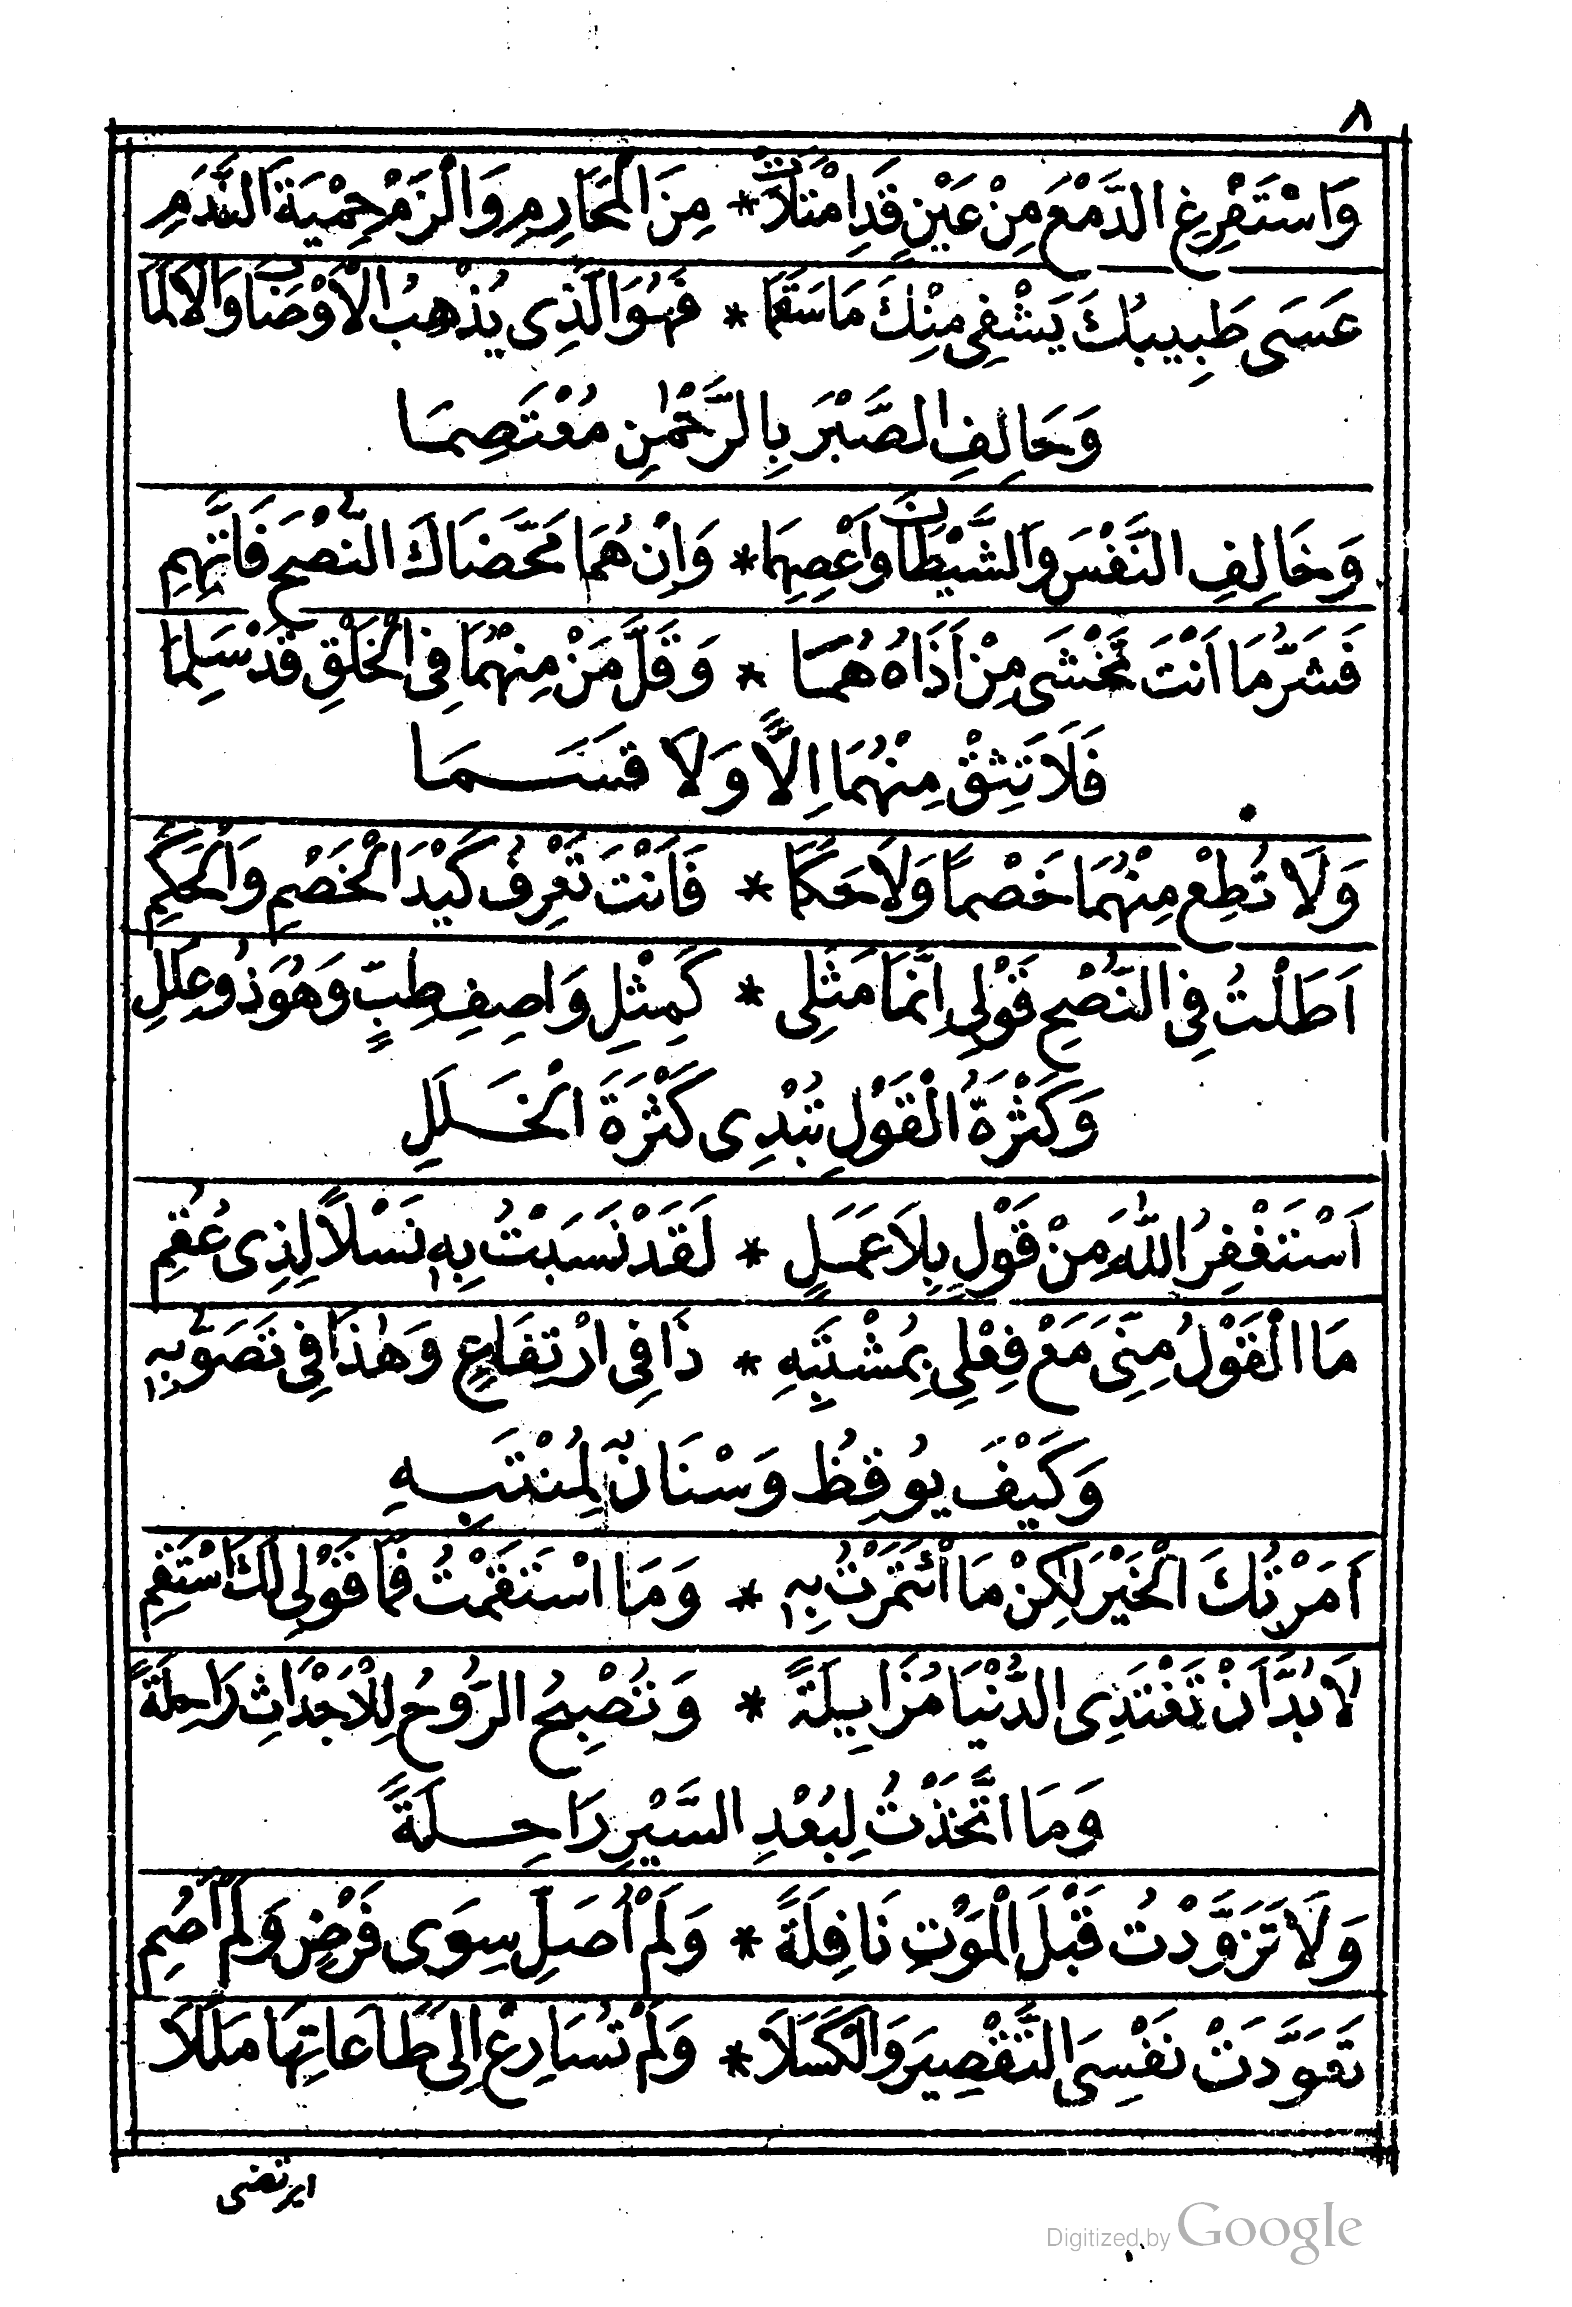 ٨
وَاسْتَفْرِغِ الدَّمْعَ مِنْ عَيْنٍ قَدِ امْتَلَأَتْ * مِنَ الْمَحَارِمِ وَالْزَمْ حِمْيَةَ النَّدَمِ
عَسَى طَبِيبُكَ يَشْفِى مِنْكَ مَا سَقَمَا * فَهُوَ الَّذِى يُذْهِبُ الْأَوْصَابَ وَالْأَلَمَا
وَحَالِفِ الصَّبْرَ بِالرَّحْمٰنِ مُعْتَصِمَا
وَخَالِفِ النَّفْسَ وَالشَّيْطَانَ وَاعْصِهِمَا * وَاِنْ هُمَا مَحَّضَاكَ النُّصْحَ فَاتَّهِمِ
فَشَرُّ مَا اَنْتَ تَخْشَى مِنْ اَذَاهُ هُمَا * وَقَلَّ مَنْ مِنْهُمَا فِى الْخَلْقِ قَدْ سَلِمَا
فَلَا تَثِقْ مِنْهُمَا اِلًّا وَلَا قَسَمَا
وَلَا تُطِعْ مِنْهُمَا خَصْمًا وَلَا حَكَمًا * فَاَنْتَ تَعْرِفُ كَيْدَ الْخَصْمِ وَالْحَكَمِ
اَطَلْتُ فِى النُّصْحِ قَوْلِى اِنَّمَا مَثَلِى * كَمِثْلِ وَاصِفِ طِبٍّ وَهُوَ ذُو عِلَلِ
وَكَثْرَةُ الْقَوْلِ تُبْدِى كَثْرَةَ الْخَلَلِ
اَسْتَغْفِرُ اللّٰهَ مِنْ قَوْلٍ بِلَا عَمَلٍ * لَقَدْ نَسَبْتُ بِهِ نَسْلًا لِذِى عُقُمِ
مَا الْقَوْلُ مِنِّىَ مَعْ فِعْلِى بِمُشْتَبِهِ * ذَا فِى ارْتِفَاعٍ وَهٰذَا فِى تَصَوُّبِهِ
وَكَيْفَ يُوقِظُ وَسْنَانٌ لِمُنْتَبِهِ
اَمَرْتُكَ الْخَيْرَ لٰكِنْ مَا ائْتَمَرْتُ بِهِ * وَمَا اسْتَقَمْتُ فَمَا قَوْلِى لَكَ اسْتَقِمِ
لَا بُدَّ اَنْ تَغْتَدِى الدُّنْيَا مُزَايِلَةً * وَتُصْبِحُ الرُّوحُ لِلْاَجْدَاثِ رَاحِلَةً
وَمَا اتَّخَذْتُ لِبُعْدِ السَّيْرِ رَاحِلَةً
وَلَا تَزَوَّدْتُ قَبْلَ الْمَوْتِ نَافِلَةً * وَلَمْ اُصَلِّ سِوَى فَرْضٍ وَلَمْ اَصُمِ
تَعَوَّدَتْ نَفْسِىَ التَّقْصِيرَ وَالْكَسَلَا * وَلَمْ تُسَارِعْ اِلَى طَاعَاتِهَا مَلَلَا
Digitized by Google